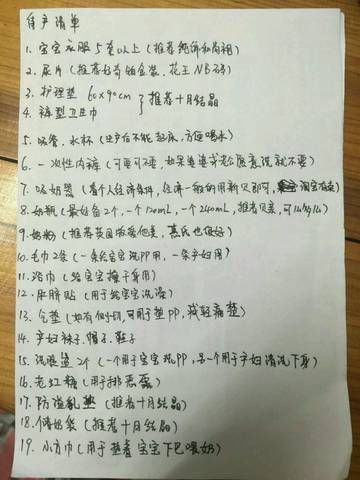 待产清单
1. 宝宝衣服5套以上(推荐纯棉和尚袍)
2. 尿片(推荐好奇铂金装、花王NB码)
3. 护理垫 60×90cm } 推荐十月结晶
4. 裤型卫生巾
5. 吸管、水杯(生产后不能起床,方便喝水)
6. 一次性内裤(可要可不要,如果婆婆或老公愿意洗就不要)
7. 吸奶器(看个人经济条件,经济一般的用新贝即可,淘宝有卖)
8. 奶瓶(最好备2个,一个120ml,一个240ml,推荐贝亲,可
9. 奶粉(推荐英国版爱他美,惠氏也很好)
10. 毛巾2条(一条给宝宝洗PP用,一条产妇用)
11. 浴巾(给宝宝擦干身用)
12. 肚脐贴(用于给宝宝洗澡)
13. 气垫(如有侧切,可用于垫PP,减轻痛楚)
14. 产妇袜子、帽子、鞋子
15. 洗脸盆2个(一个用于宝宝洗PP,另一个用于产妇清洗下身)
16. 老红糖(用于排恶露)
17. 防溢乳垫(推荐十月结晶)
18. 储奶袋(推荐十月结晶)
19. 小方巾(用于垫着宝宝下巴喂奶)